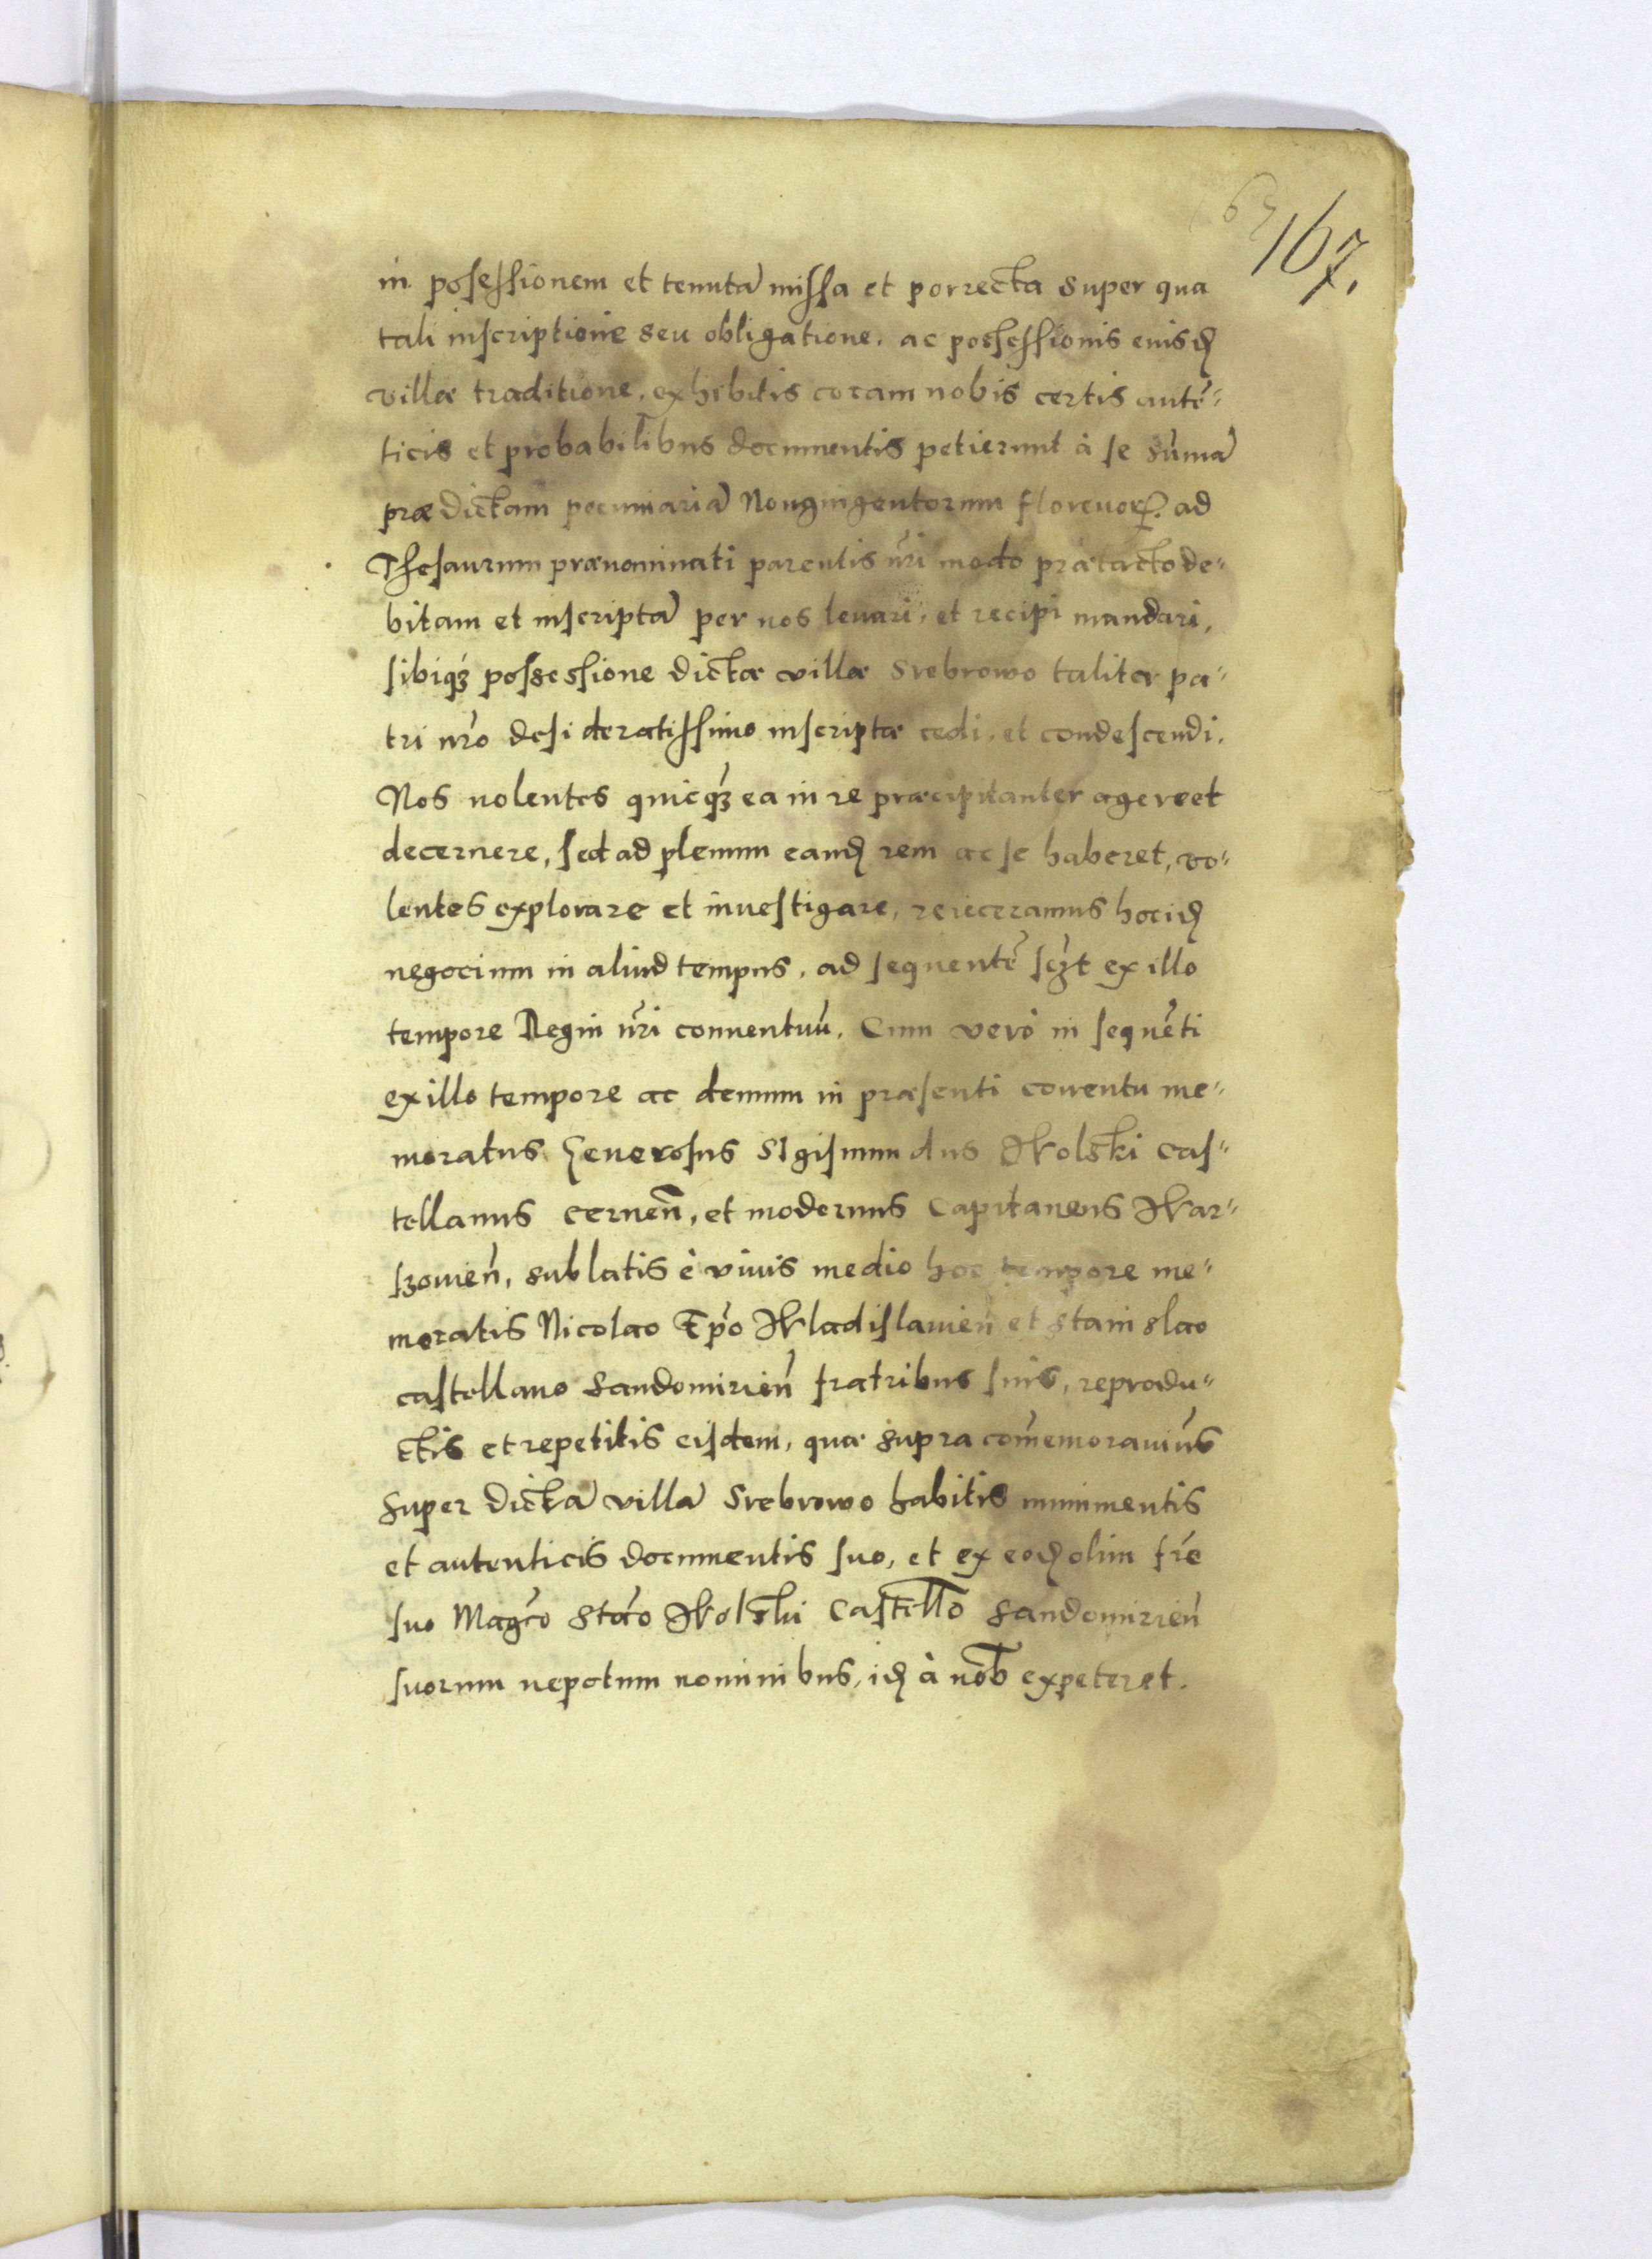 167.
in possessionem et tenutā missa et porrecta super qua
tali inscriptione seu obligatione, ac possessionis eiusdꝫ
villæ traditione, exhibitis coram nobis certis autē-
ticis et probabilibus documentis petierunt à se sūmā
prædictam pecuniariā Nongingentorum florenorꝝ ad
Thesaurum prænominati parentis nr̄i modo prætacto de-
bitam et inscriptā per nos leuari, et recipi mandari,
sibiqꝫ possessione dictæ villæ Srebrowo taliter pa-
tri nr̄o desideratissimo inscriptæ cedi, et condescendi.
Nos nolentes quicqꝫ ea in re præcipitanter agere et
decernere, sed ad plenum eandꝫ rem ac se haberet, vo-
lentes explorare et inuestigare, reieceramus hoc idꝫ
negocium in aliud tempus, ad sequentē scꝫt ex illo
tempore Regni nr̄i conuentuū. Cum verò in sequēti
ex illo tempore ac demum in præsenti conentu me-
moratus Generosus Sigismundus Wolski Cas-
tellanus cernen̄, et modernus Capitaneus War-
szouien̄, sublatis è viuis medio hoc tempore me-
moratis Nicolao Ep̄o Wladislauien̄ et Stanislao
castellano Sandomirien̄ fratribus suis, reprodu-
ctis et repetitis eisdem, quæ supra com̄emorauim̄us
super dictā villā Srebrowo habitis munimentis
et autenticis documentis suo, et ex eodꝫ olim fr̄e
suo Magc̄o Stāo Wolski Castell̄o Sandomirien̄
suorum nepotum nominibus, idꝫ à nob̄ expeteret.